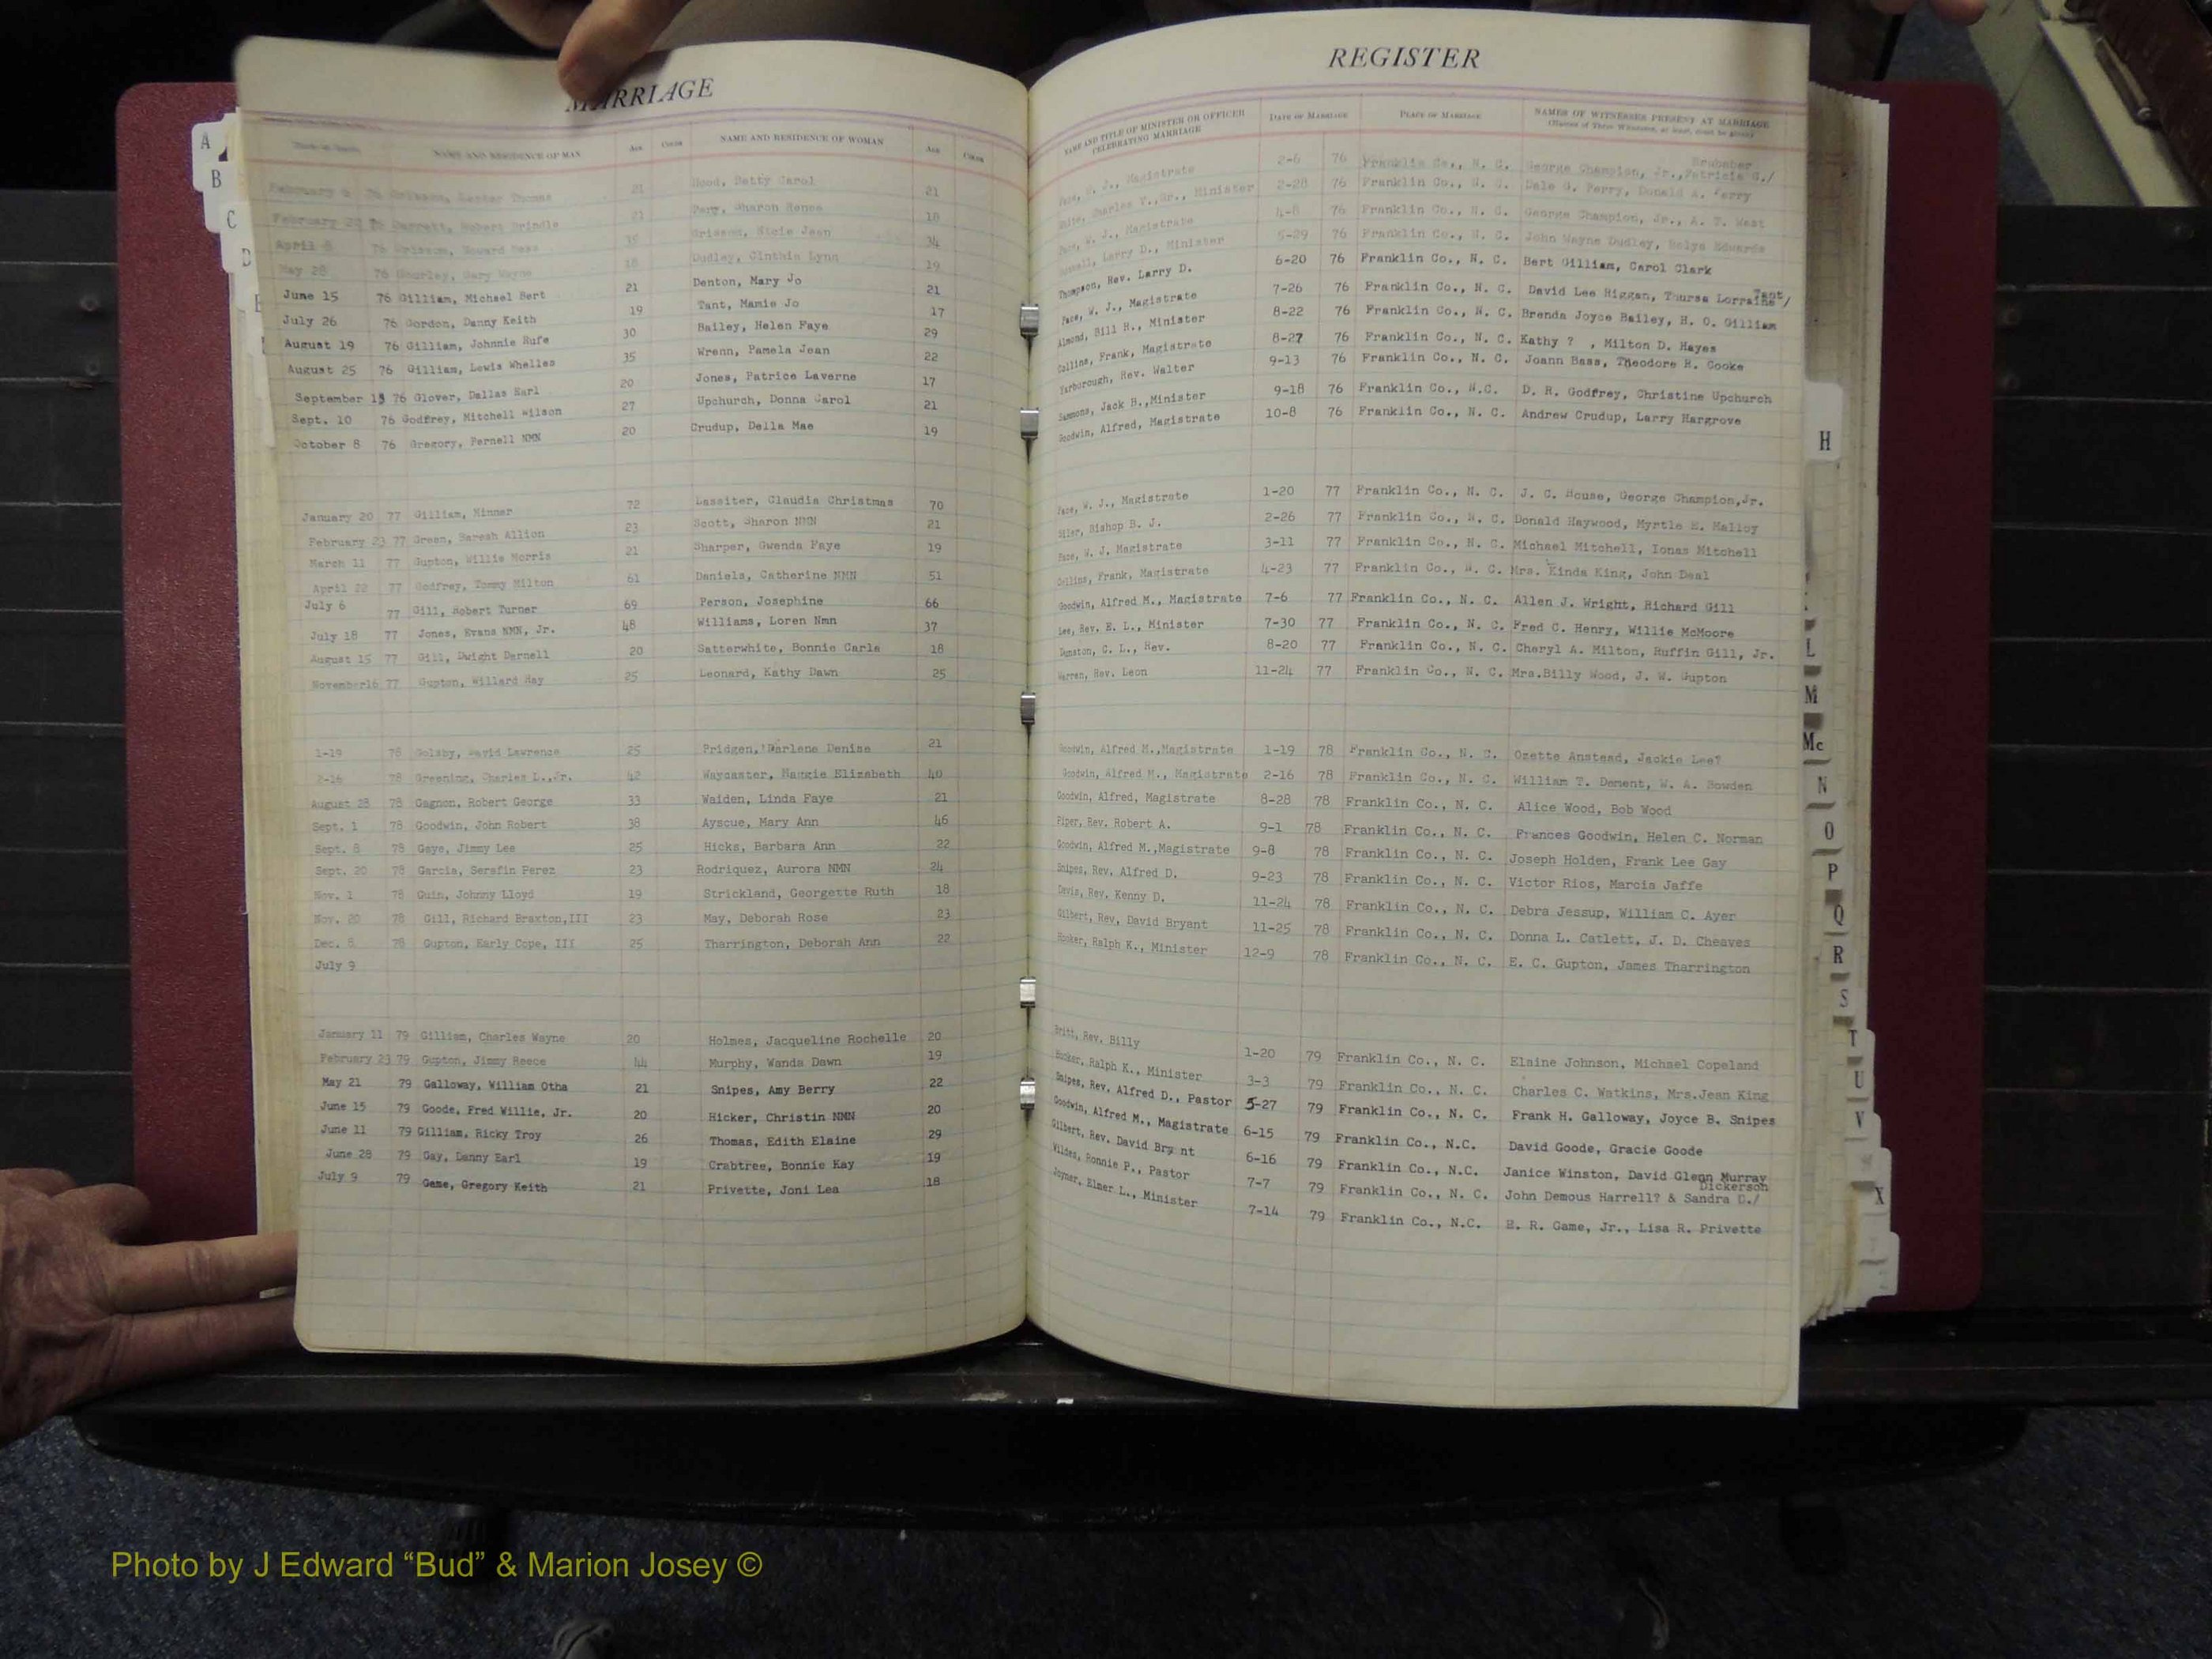 MARRIAGE
REGISTER
NAME AND RESIDENCE OF MAN Age Color NAME AND RESIDENCE OF WOMAN Age Color NAME AND TITLE OF MINISTER OR OFFICER CELEBRATING MARRIAGE DATE OF MARRIAGE PLACE OF MARRIAGE NAMES OF WITNESSES PRESENT AT MARRIAGE
February 6 76 Grissom, Thomas 21 Hood, Betty Carol 21 Pace, W. J., Magistrate 2-6 76 Franklin Co., N. C. George Champion, Jr., Patricia G./ Brubaber
February 76 Robert Brindle 21 Sharon Renee 18 Charles V.,Sr., Minister 2-28 76 Franklin Co., N. C. Dale G. Perry, Donald A. Perry
April 8 76 Grissom, 35 Grissom, Jean 34 Pace, W. J., Magistrate 4-8 76 Franklin Co., N. C. George Champion, Jr., A. T. West
May 28 76 Gary Wayne 18 Dudley, Cinthia Lynn 19 Larry D., Minister 5-29 76 Franklin Co., N. C. John Wayne Dudley, Edwards
June 15 76 Gilliam, Michael Bert 21 Denton, Mary Jo 21 Thompson, Rev. Larry D. 6-20 76 Franklin Co., N. C. Bert Gilliam, Carol Clark
July 26 76 Gordon, Danny Keith 19 Tant, Mamie Jo 17 Pace, W. J., Magistrate 7-26 76 Franklin Co., N. C. David Lee Higgan, Thursa Lorraine Tant/
August 19 76 Gilliam, Johnnie Rufe 30 Bailey, Helen Faye 29 Almond, Bill H., Minister 8-22 76 Franklin Co., N. C. Brenda Joyce Bailey, H. O. Gilliam
August 25 76 Gilliam, Lewis Whelles 35 Wrenn, Pamela Jean 22 Collins, Frank, Magistrate 8-27 76 Franklin Co., N. C. Kathy ? , Milton D. Hayes
September 13 76 Glover, Dallas Earl 20 Jones, Patrice Laverne 17 Yarborough, Rev. Walter 9-13 76 Franklin Co., N. C. Joann Bass, Theodore R. Cooke
Sept. 10 76 Godfrey, Mitchell Wilson 27 Upchurch, Donna Carol 21 Sammons, Jack B.,Minister 9-18 76 Franklin Co., N.C. D. R. Godfrey, Christine Upchurch
October 8 76 Gregory, Pernell NMN 20 Crudup, Della Mae 19 Goodwin, Alfred, Magistrate 10-8 76 Franklin Co., N. C. Andrew Crudup, Larry Hargrove
January 20 77 Gilliam, Minner 72 Lassiter, Claudia Christmas 70 Pace, W. J., Magistrate 1-20 77 Franklin Co., N. C. J. C. House, George Champion,Jr.
February 23 77 Green, Saresh Allion 23 Scott, Sharon NMN 21 Bishop B. J. 2-26 77 Franklin Co., N. C. Donald Haywood, Myrtle E. Malloy
March 11 77 Gupton, Willie Morris 21 Sharper, Gwenda Faye 19 Pace, W. J, Magistrate 3-11 77 Franklin Co., N. C. Michael Mitchell, Ionas Mitchell
April 22 77 Godfrey, Tommy Hilton 61 Daniels, Catherine NMN 51 Collins, Frank, Magistrate 4-23 77 Franklin Co., N. C. Mrs. Kinda King, John Deal
July 6 77 Gill, Robert Turner 69 Person, Josephine 66 Goodwin, Alfred M., Magistrate 7-6 77 Franklin Co., N. C. Allen J. Wright, Richard Gill
July 18 77 Jones, Evans NMN, Jr. 48 Williams, Loren Nmn 37 Lee, Rev. E. L., Minister 7-30 77 Franklin Co., N. C. Fred C. Henry, Willie McMoore
August 15 77 Gill, Dwight Darnell 20 Satterwhite, Bonnie Carle 18 Dunston, C. L., Rev. 8-20 77 Franklin Co., N. C. Cheryl A. Milton, Ruffin Gill, Jr.
November16 77 Gupton, Willard Ray 25 Leonard, Kathy Dawn 25 Warren, Rev. Leon 11-24 77 Franklin Co., N. C. Mrs.Billy Wood, J. W. Gupton
1-19 78 Golsby, David Lawrence 25 Pridgen, Darlene Denise 21 Goodwin, Alfred M.,Magistrate 1-19 78 Franklin Co., N. C. Ozette Anstead, Jackie Lee?
2-16 78 Greening, Charles L.,Jr. 42 Waycaster, Maggie Elizabeth 40 Goodwin, Alfred M., Magistrate 2-16 78 Franklin Co., N. C. William T. Dement, W. A. Bowden
August 28 78 Gagnon, Robert George 33 Waiden, Linda Faye 21 Goodwin, Alfred, Magistrate 8-28 78 Franklin Co., N. C. Alice Wood, Bob Wood
Sept. 1 78 Goodwin, John Robert 38 Ayscue, Mary Ann 46 Piper, Rev. Robert A. 9-1 78 Franklin Co., N. C. Frances Goodwin, Helen C. Norman
Sept. 8 78 Gaye, Jimmy Lee 25 Hicks, Barbara Ann 22 Goodwin, Alfred M.,Magistrate 9-8 78 Franklin Co., N. C. Joseph Holden, Frank Lee Gay
Sept. 20 78 Garcia, Serafin Perez 23 Rodriquez, Aurora NMN 24 Snipes, Rev. Alfred D. 9-23 78 Franklin Co., N. C. Victor Rios, Marcia Jaffe
Nov. 1 78 Guin, Johnny Lloyd 19 Strickland, Georgette Ruth 18 Davis, Rev. Kenny D. 11-24 78 Franklin Co., N. C. Debra Jessup, William C. Ayer
Nov. 20 78 Gill, Richard Braxton,III 23 May, Deborah Rose 23 Gilbert, Rev, David Bryant 11-25 78 Franklin Co., N. C. Donna L. Catlett, J. D. Cheaves
Dec. 8 78 Gupton, Early Cope, III 25 Tharrington, Deborah Ann 22 Hooker, Ralph K., Minister 12-9 78 Franklin Co., N. C. E. C. Gupton, James Tharrington
July 9
January 11 79 Gilliam, Charles Wayne 20 Holmes, Jacqueline Rochelle 20 Britt, Rev. Billy 1-20 79 Franklin Co., N. C. Elaine Johnson, Michael Copeland
February 23 79 Gupton, Jimmy Reece 44 Murphy, Wanda Dawn 19 Hooker, Ralph K., Minister 3-3 79 Franklin Co., N. C. Charles C. Watkins, Mrs.Jean King
May 21 79 Galloway, William Otha 21 Snipes, Amy Berry 22 Snipes, Rev. Alfred D., Pastor 5-27 79 Franklin Co., N. C. Frank H. Galloway, Joyce B. Snipes
June 15 79 Goode, Fred Willie, Jr. 20 Hicker, Christin NMN 20 Goodwin, Alfred M., Magistrate 6-15 79 Franklin Co., N.C. David Goode, Gracie Goode
June 11 79 Gilliam, Ricky Troy 26 Thomas, Edith Elaine 29 Gilbert, Rev. David Bry nt 6-16 79 Franklin Co., N.C. Janice Winston, David Glenn Murray
June 28 79 Gay, Danny Earl 19 Crabtree, Bonnie Kay 19 Wildes, Ronnie P., Pastor 7-7 79 Franklin Co., N. C. John Demous Harrell? & Sandra D./ Dickerson
July 9 79 Game, Gregory Keith 21 Privette, Joni Lea 18 Joyner, Elmer L., Minister 7-14 79 Franklin Co., N.C. E. R. Game, Jr., Lisa R. Privette
A
B
C
D
E
H
L
M
Mc
N
O
P
Q
R
S
T
U
V
X
Photo by J Edward “Bud” & Marion Josey ©